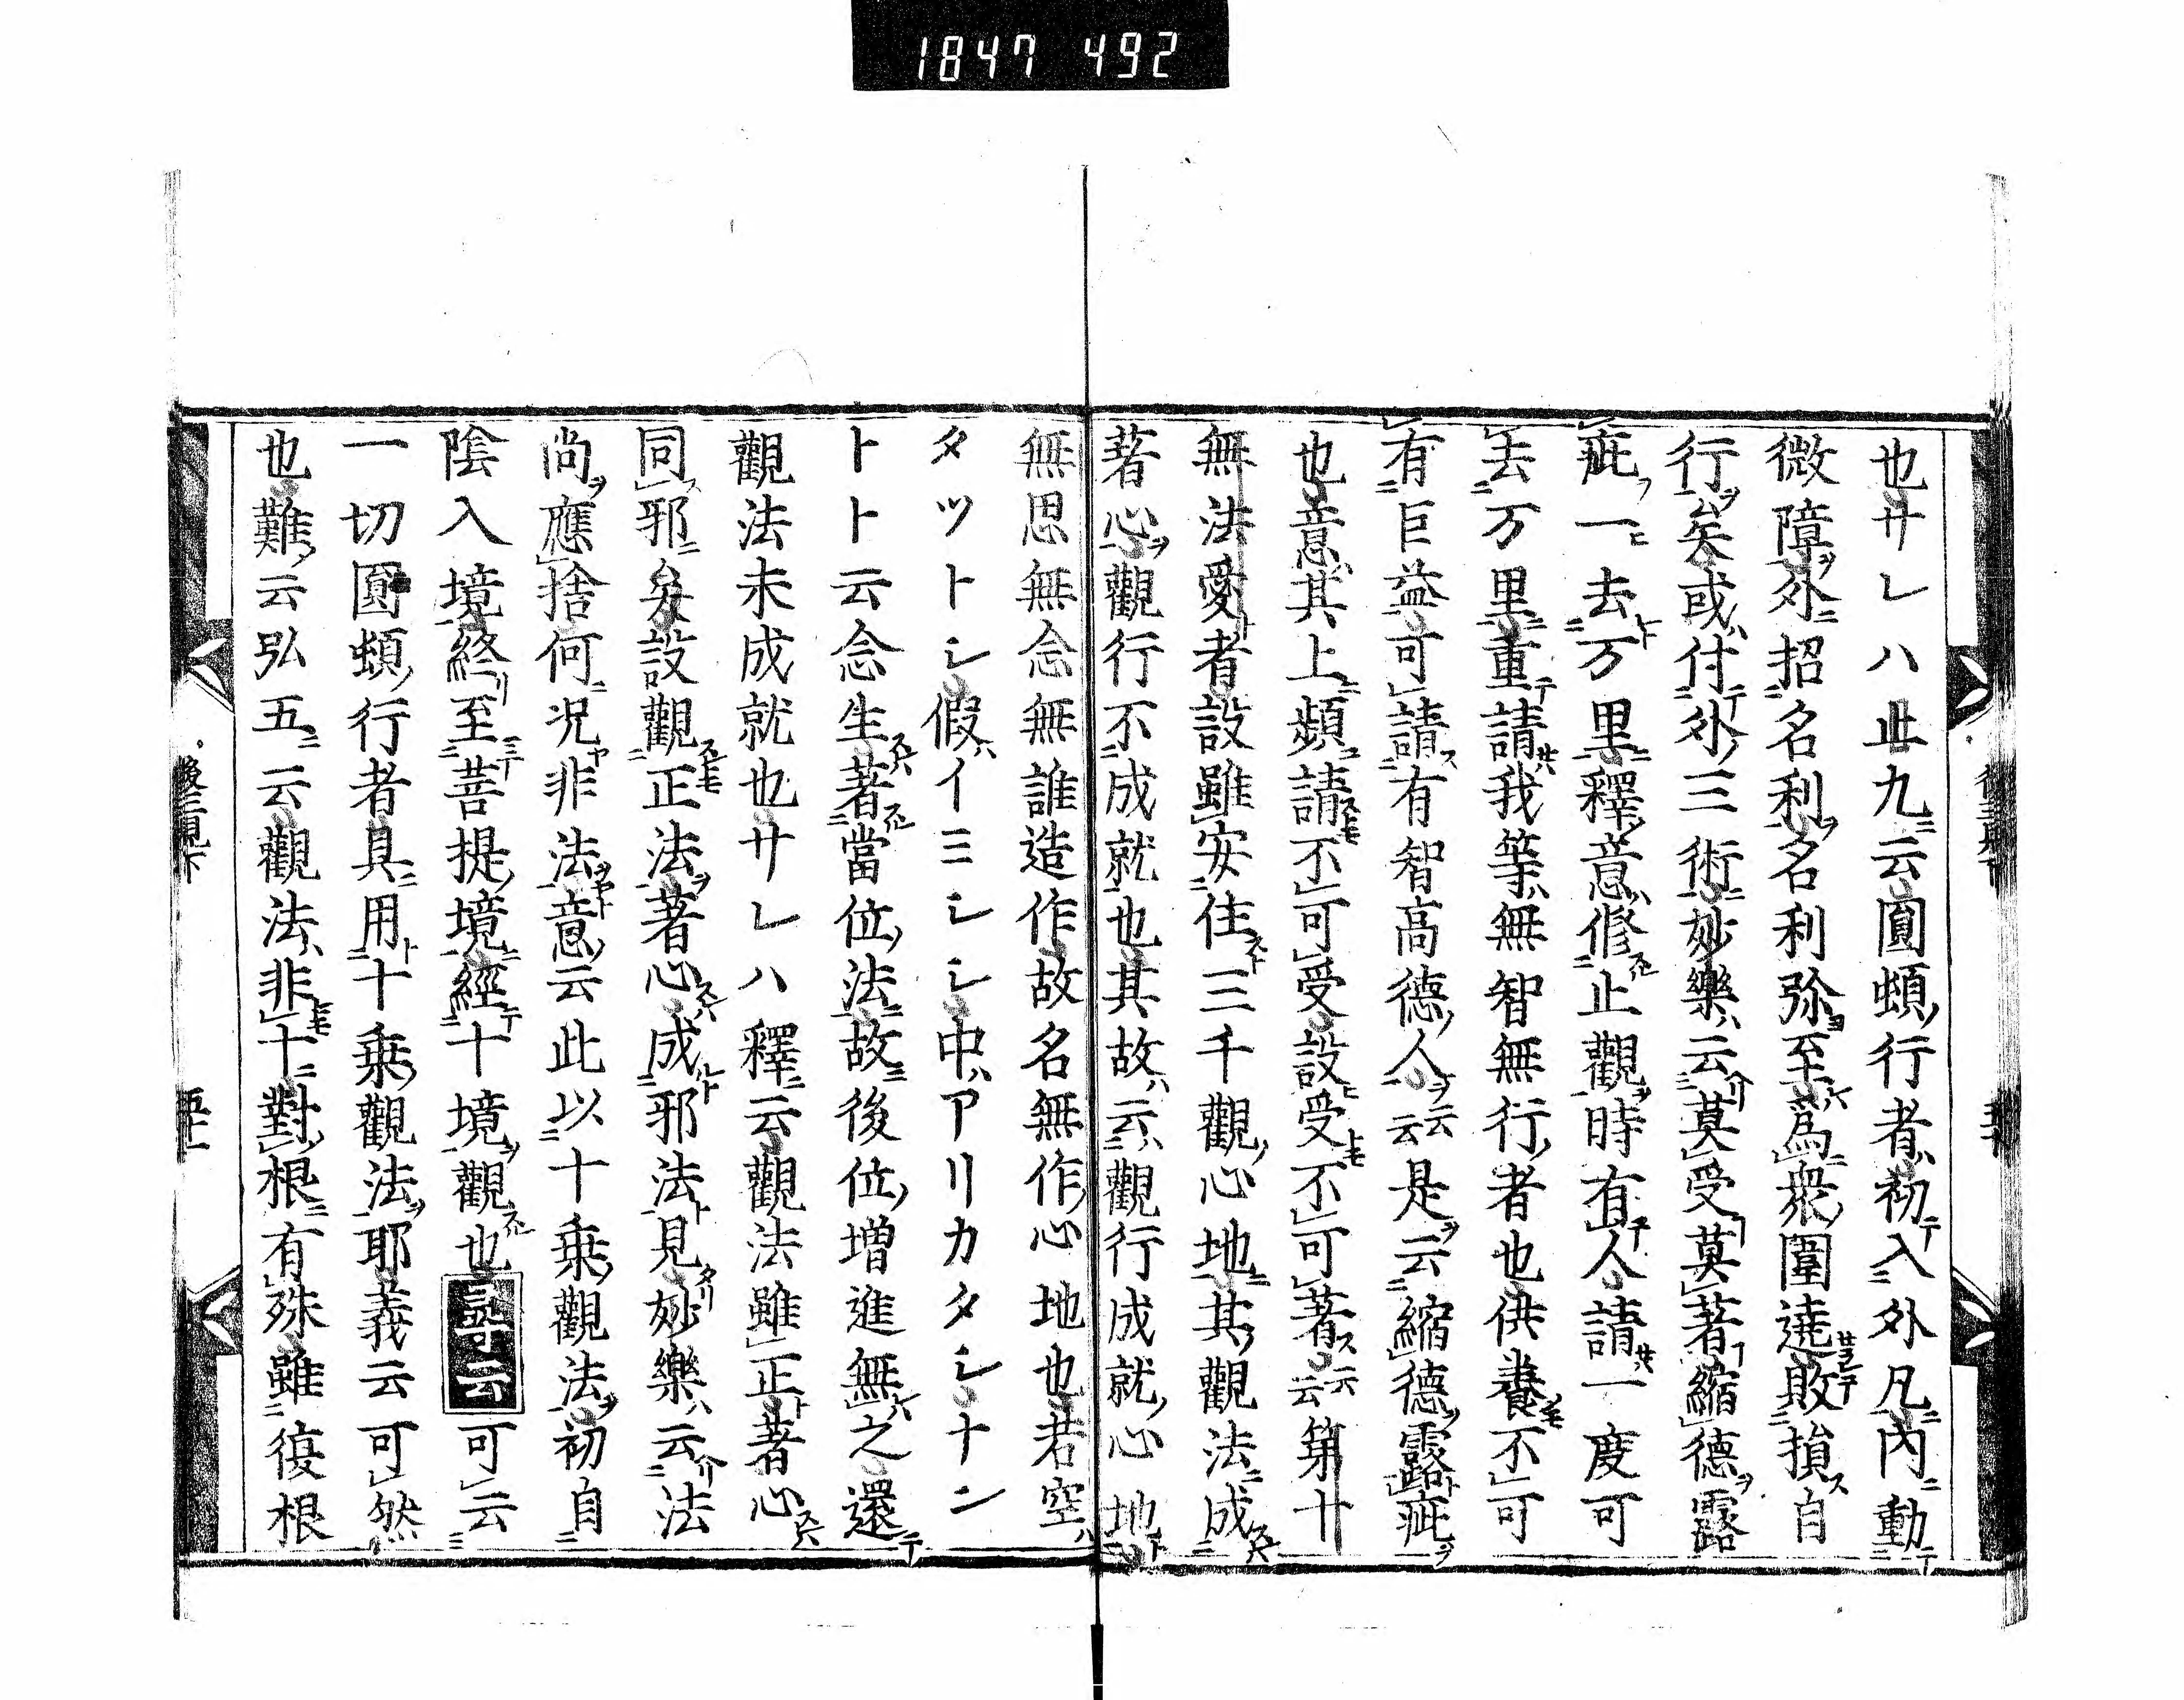 1847 492
也サレハ此九云圓頓行者初入外凡內動
微障外招名利名利弥至爲衆圍遶敗損自
行矣或付外三術妙樂云莫受莫著縮德露
疵一去万里釋意修止觀時有人請一度可
去万里重請我等無智無行者也供養不可
有巨益可請有智高德人云云是云縮德露疵
也意其上頻請不可受設受不可著云云第十
無法愛者設雖安住三千觀心地其觀法成
著心觀行不成就也其故云觀行成就心地
無思無念無誰造作故名無作心地也若空
タツトシ假イミシシ中アリカタシナン
トト云念生著當位法故後位增進無之還
觀法未成就也サレハ釋云觀法雖正著心
同邪矣設觀正法著心成邪法見妙樂云法
尚應捨何況非法意云此以十乘觀法初自
陰入境終至菩提境經十境觀也尋云可云
一切圓頓行者具用十乘觀法耶義云可然
也難云弘五云觀法非十對根有殊雖復根